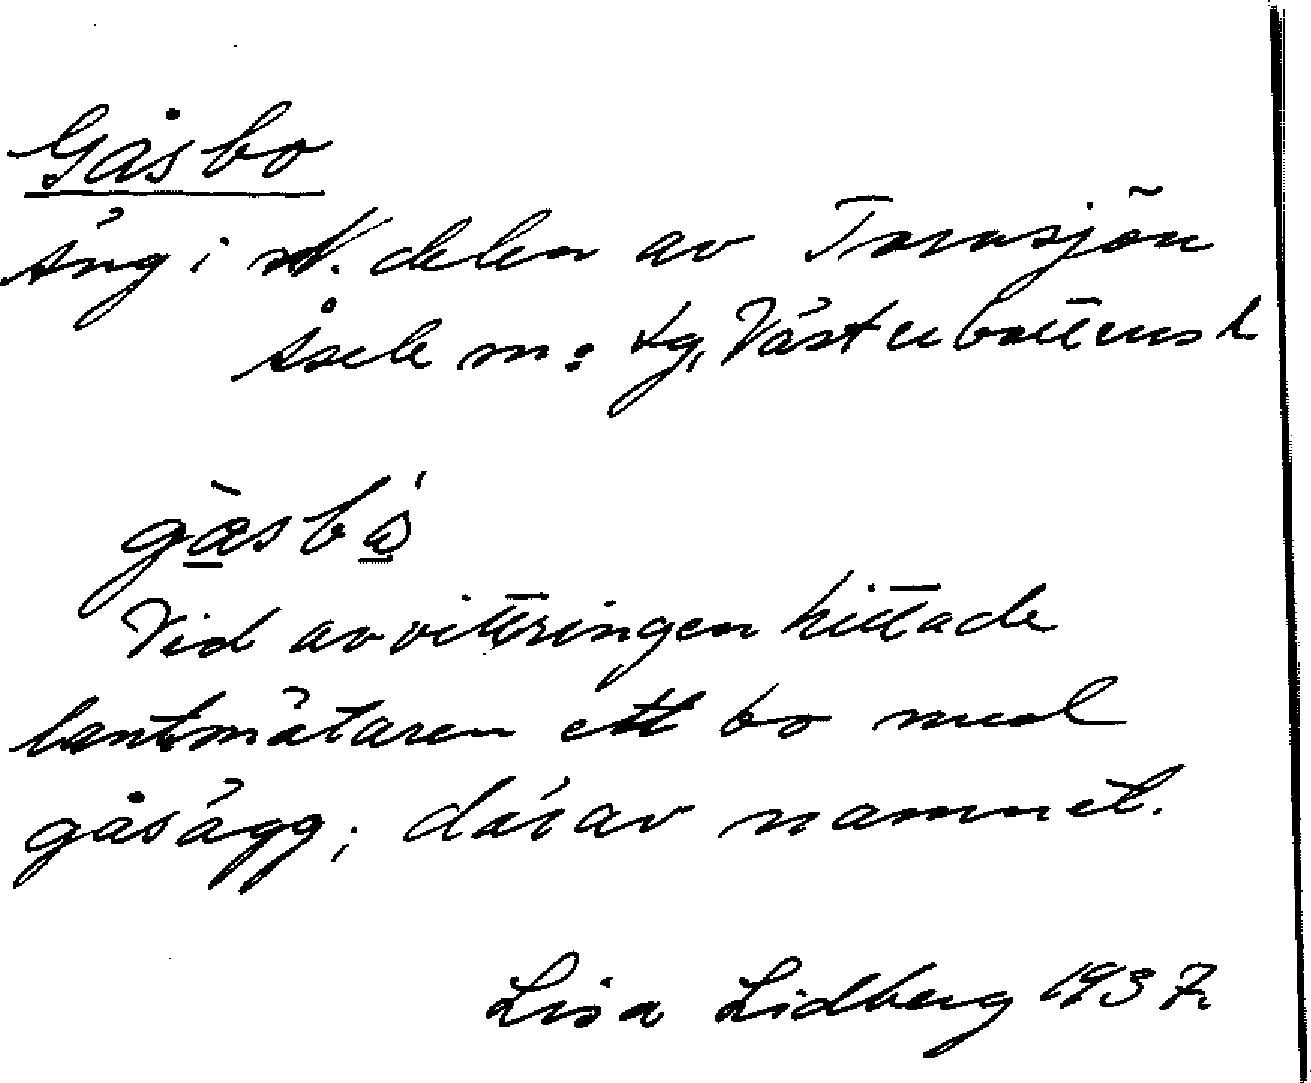 Gåsbo
Äng i N. delen av Torvsjön
Åsele m: tg, Västerbottens l
gàsbó
Vid avvittringen hittade
lantmätaren ett bo med
gåsägg; därav namnet.
Lisa Lidberg 1937.